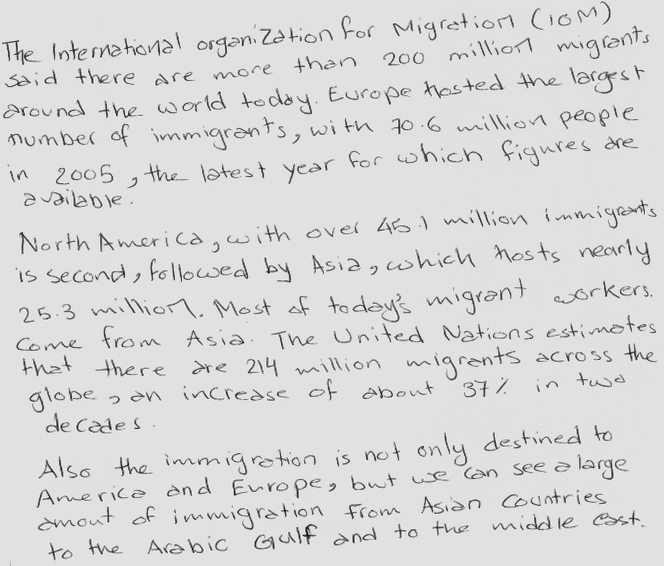 The International organization for Migration (IOM)
said there are more than 200 million migrants
around the world today. Europe hosted the largest
number of immigrants, with 70.6 million people
in 2005, the latest year for which figures are
available.
North America, with over 45.1 million immigrants
is second, followed by Asia, which hosts nearly
25.3 million. Most of today's migrant workers.
Come from Asia. The United Nations estimates
that there are 214 million migrants across the
globe, an increase of about 37% in two
decades.
Also the immigration is not only destined to
America and Europe, but we can see a large
amout of immigration from Asian Countries
to the Arabic Gulf and to the middle East.